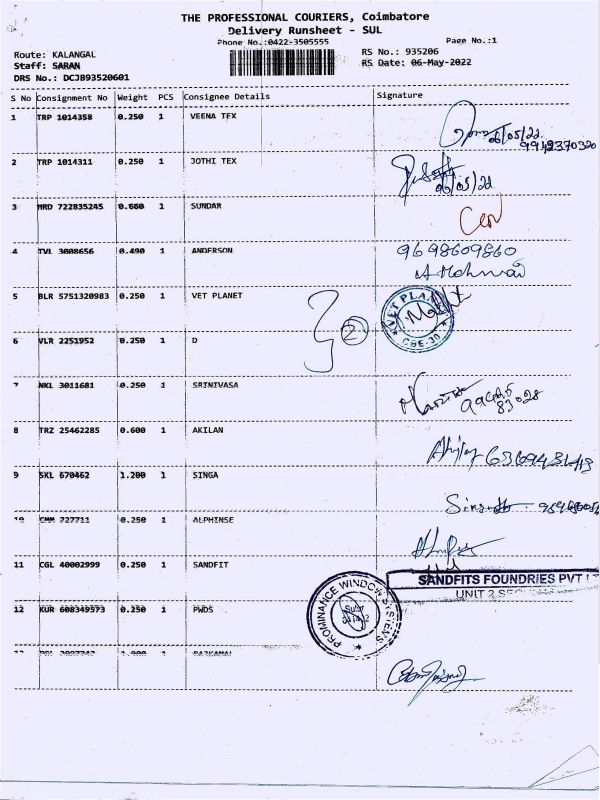 THE PROFESSIONAL COURIERS, Coimbatore
Delivery Runsheet - SUL
Phone No.:0422-3505555
Page No.:1
Route: KALANGAL
RS No.: 935206
Staff: SARAN
RS Date: 06-May-2022
DRS No.: DCJB93520601
S No Consignment No Weight PCS Consignee Details Signature
1 TRP 1014358 0.250 1 VEENA TEX
06/05/22
9942370320
2 TRP 1014311 0.250 1 JOTHI TEX
06/05/22
3 MRD 722835245 0.660 1 SUNDAR
4 TVL 3008656 0.490 1 ANDERSON
9698609860
5 BLR 5751320983 0.250 1 VET PLANET
VET PLANET
CBE-30
2
6 VLR 2251952 0.250 1 D
7 NKL 3011681 0.250 1 SRINIVASA
8 TRZ 25462285 0.600 1 AKILAN
9 SKL 670462 1.200 1 SINGA
10 CMM 727711 0.250 1 ALPHINSE
11 CGL 40002999 0.250 1 SANDFIT
SANDFITS FOUNDRIES PVT LT
UNIT 2
12 KUR 600349573 0.250 1 PWDS
PROMINANCE WINDOW SYSTEMS
Sulur
641402
13 1 RAJKAMAL